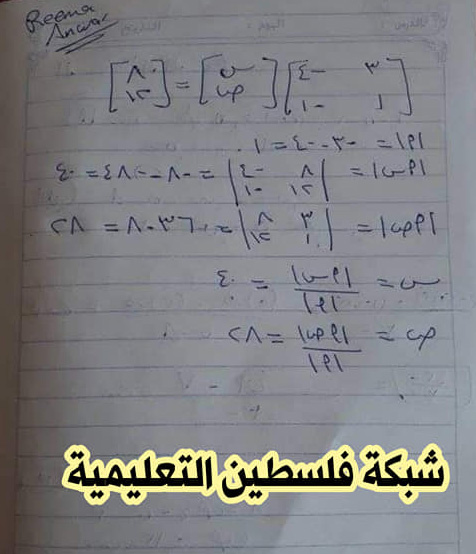 Reema
Anwar
[٣ -٤ ; ١ -١] [س ; ص] = [٨ ; ١٢]
|أ| = -٣ - -٤ = ١
|أس| = |٨ -٤ ; ١٢ -١| = -٨ - -٤٨ = ٤٠
|أص| = |٣ ٨ ; ١ ١٢| = ٣٦ - ٨ = ٢٨
س = |أس| / |أ| = ٤٠
ص = |أص| / |أ| = ٢٨
شبكة فلسطين التعليمية